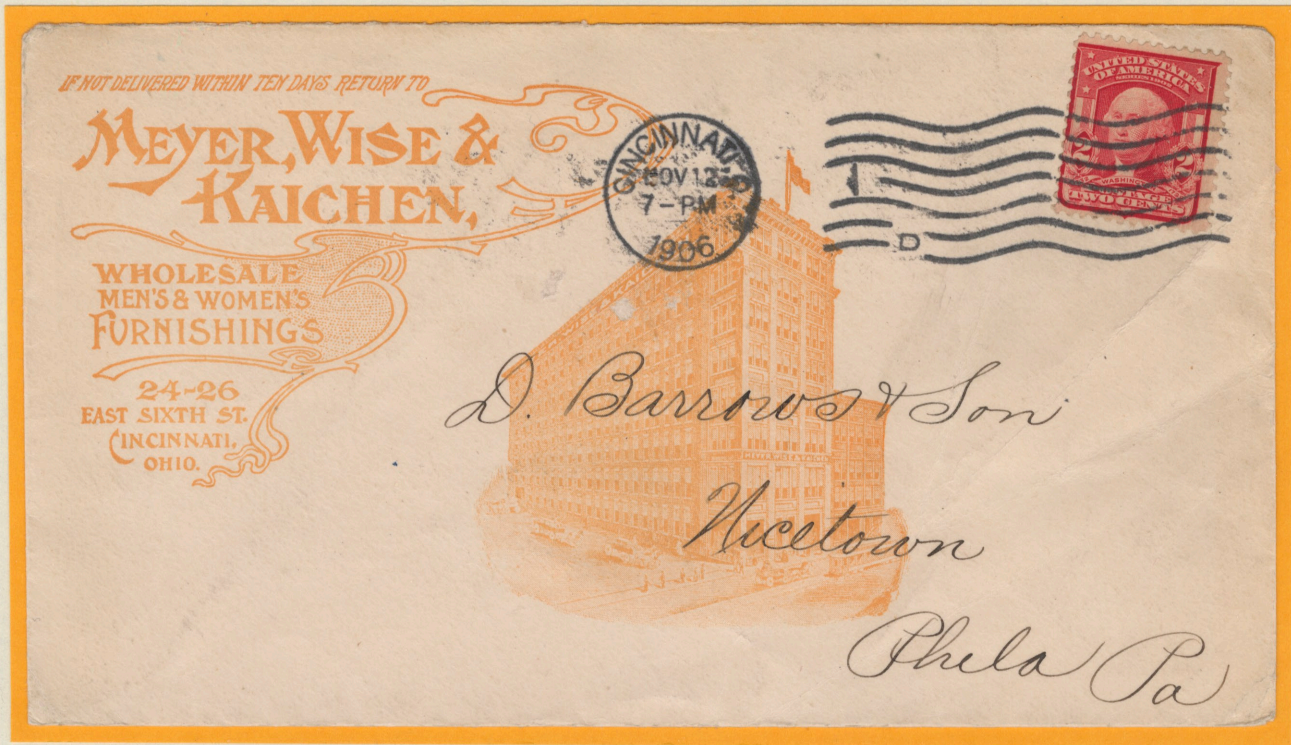 IF NOT DELIVERED WITHIN TEN DAYS RETURN TO
MEYER, WISE &
KAICHEN,
WHOLESALE
MEN'S & WOMEN'S
FURNISHINGS
24-26
EAST SIXTH ST.
CINCINNATI,
OHIO.
CINCINNATI, O.
NOV 12
7-PM
1906
D
UNITED STATES
OF AMERICA
SERIES 1902
2 2
WASHINGTON
POSTAGE
TWO CENTS
MEYER, WISE & KAICHEN
D. Barrows & Son
Nicetown
Phila Pa